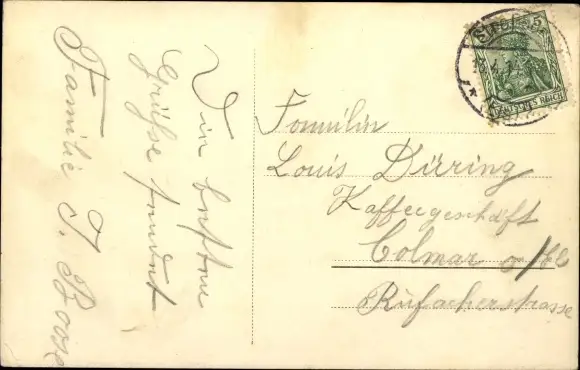 Die besten
Grüße sendet
Familie T. Boos
Familie
Louis Düring
Kaffeegeschäft
Colmar o/Els
Rufacherstrasse
5
DEUTSCHES REICH